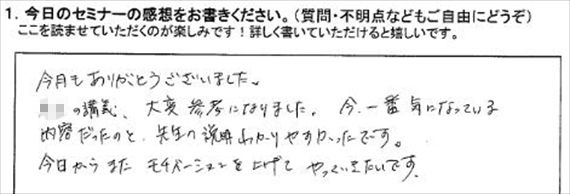 1. 今日のセミナーの感想をお書きください。(質問・不明点などもご自由にどうぞ)
ここを読ませていただくのが楽しみです！詳しく書いていただけると嬉しいです。
今月もありがとうございました。
の講義、大変参考になりました。今、一番気になっている
内容だったのと、先生の説明わかりやすかったです。
今日からまたモチベーションを上げてやっていきたいです。